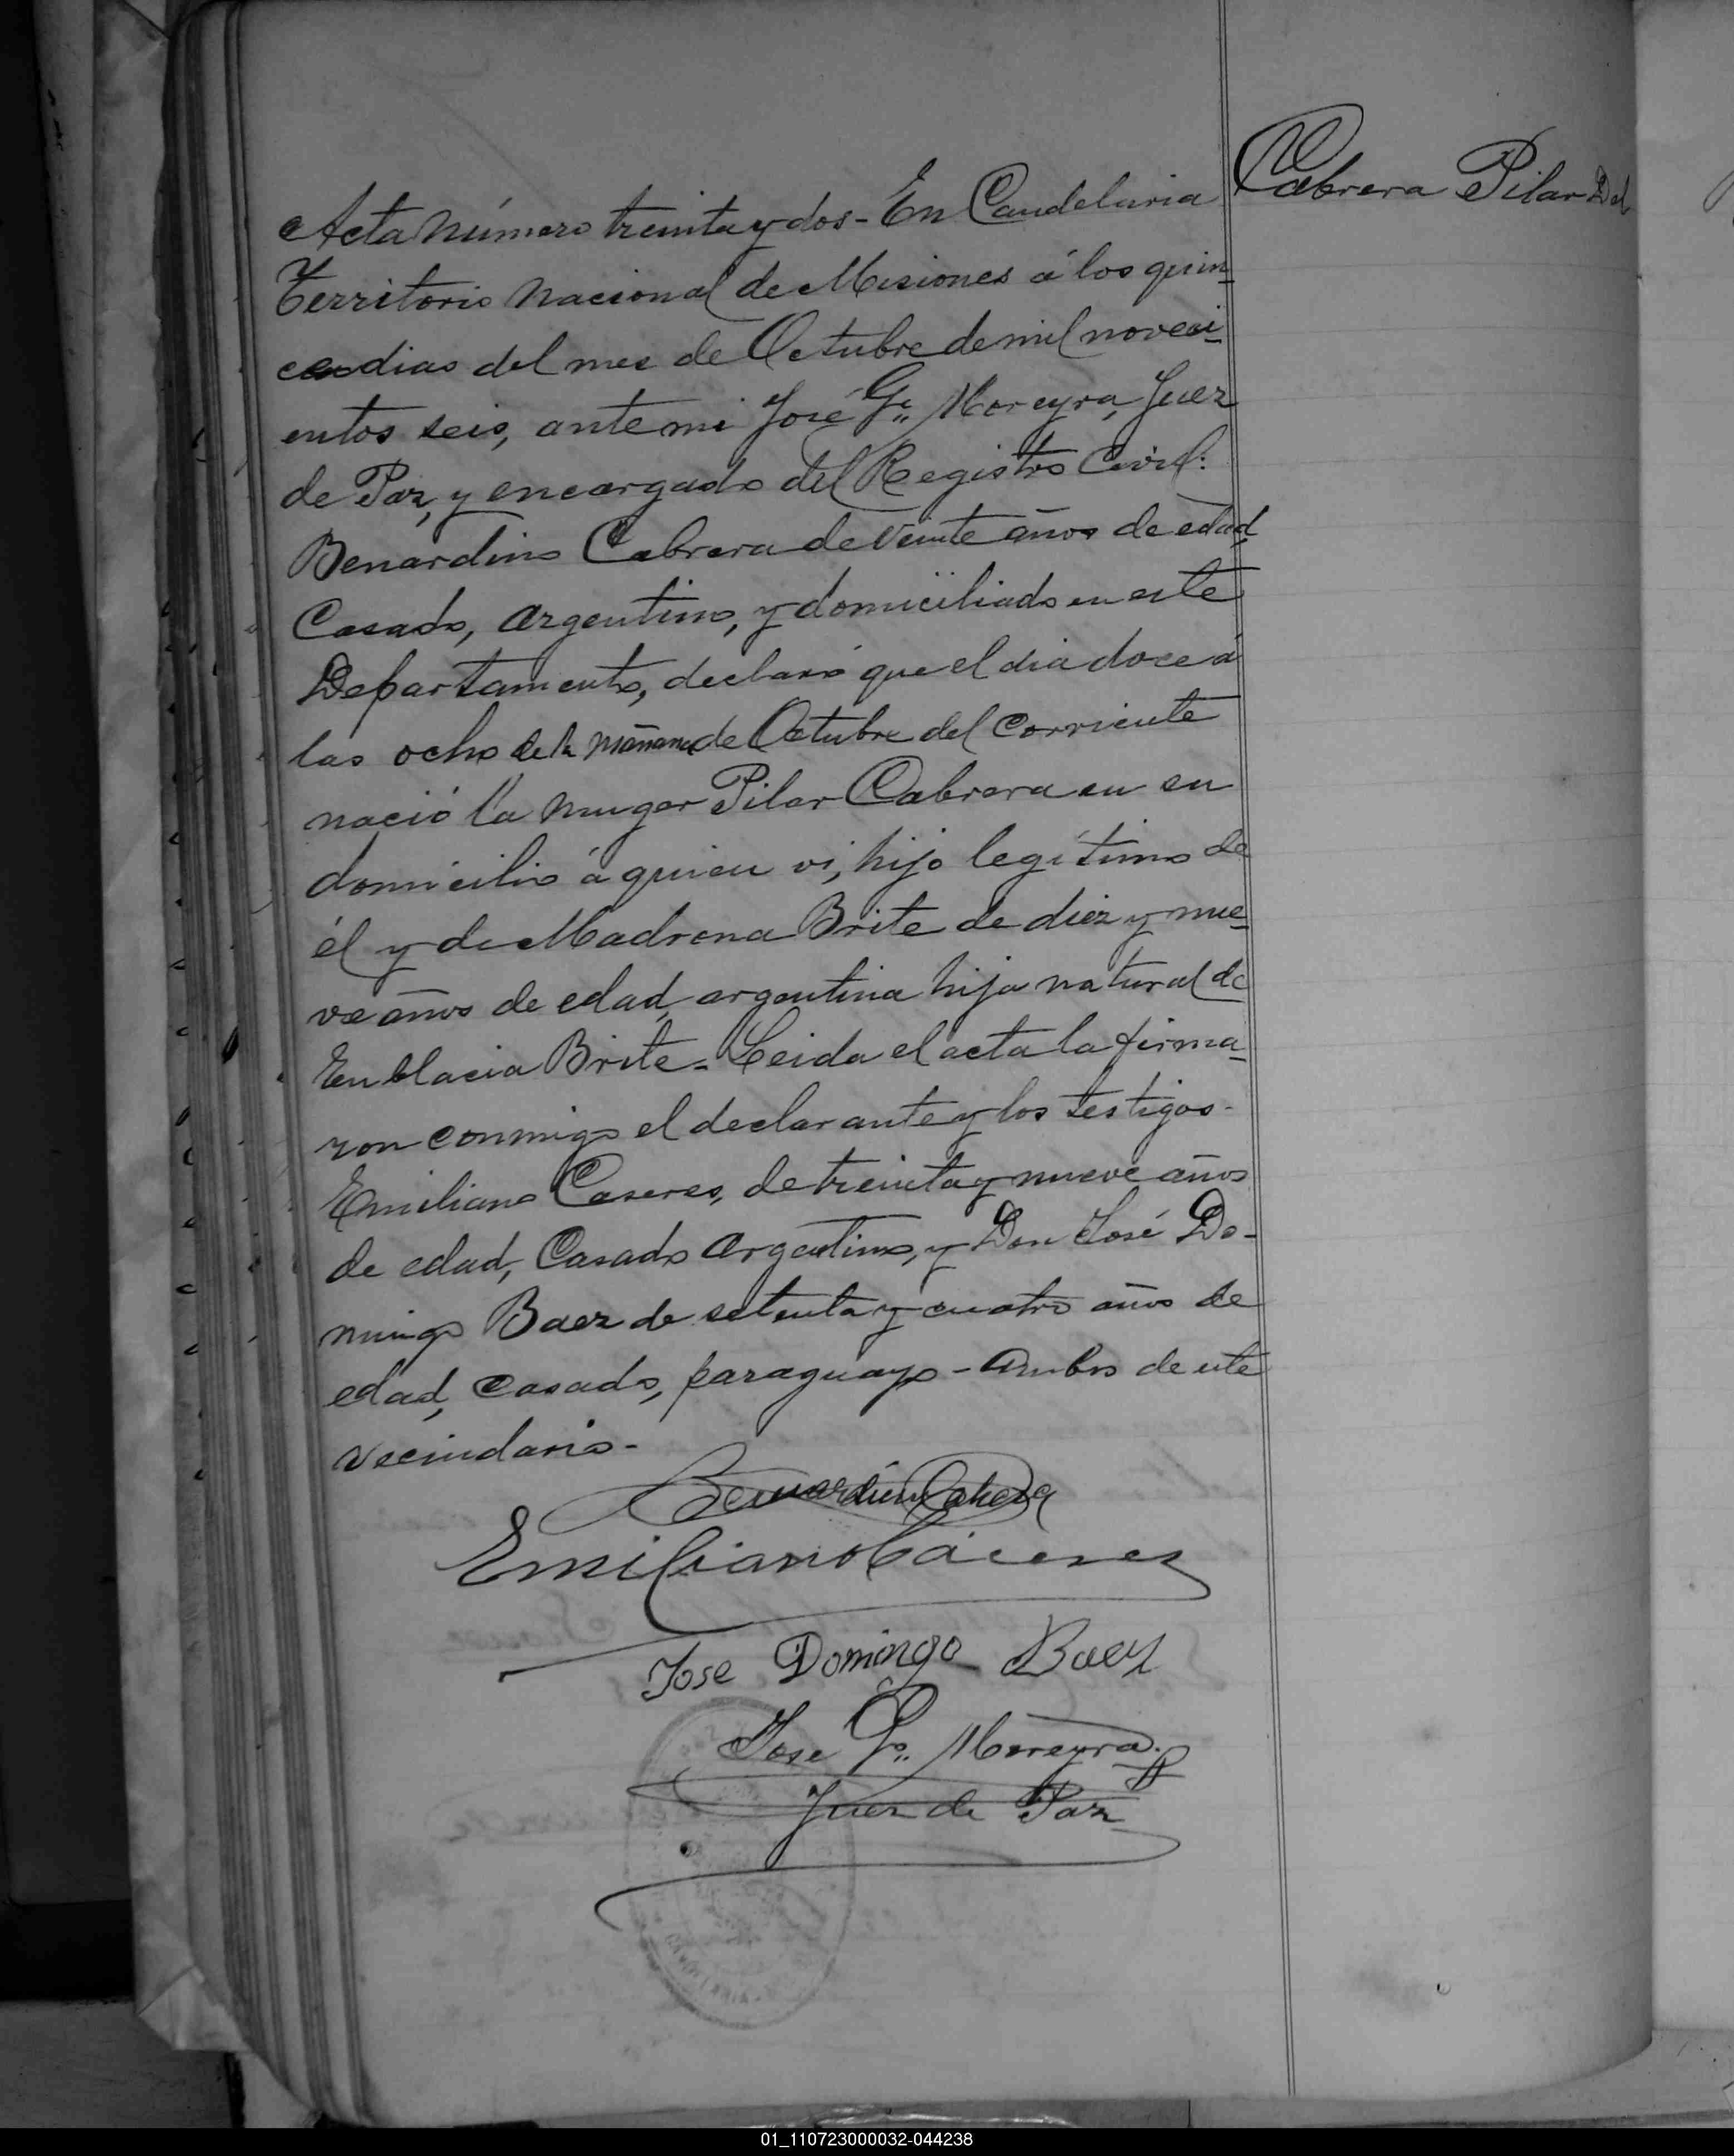 Cabrera Pilar Del
Acta número treinta y dos - En Candelaria
Territorio Nacional de Misiones á los quin-
ce dias del mes de Octubre de mil noveci-
entos seis, ante mi José G. Moreyra, Juez
de Paz, y encargado del Registro Civil:
Benardino Cabrera de veinte años de edad,
Casado, argentino, y domiciliado en este
Departamento, declaró que el dia doce á
las ocho de la mañana de Octubre del corriente
nació la muger Pilar Cabrera en su
domicilio á quien vi, hijo legítimo de
él y de Madrona Brite de diez y nue-
ve años de edad, argentina hija natural de
Brite - Leida el acta la firma-
ron conmigo el declarante y los testigos -
Emiliano Caseres, de treinta y nueve años
de edad, Casado argentino, y Don José Do-
mingo Baez de setenta y cuatro años de
edad, casado, paraguayo - Ambos de este
vecindario -
Bernardino Cabrera
Emiliano Cáceres
Jose Domingo Baez
Jose G. Moreyra
Juez de Paz
CANDELARIA
01_110723000032-044238